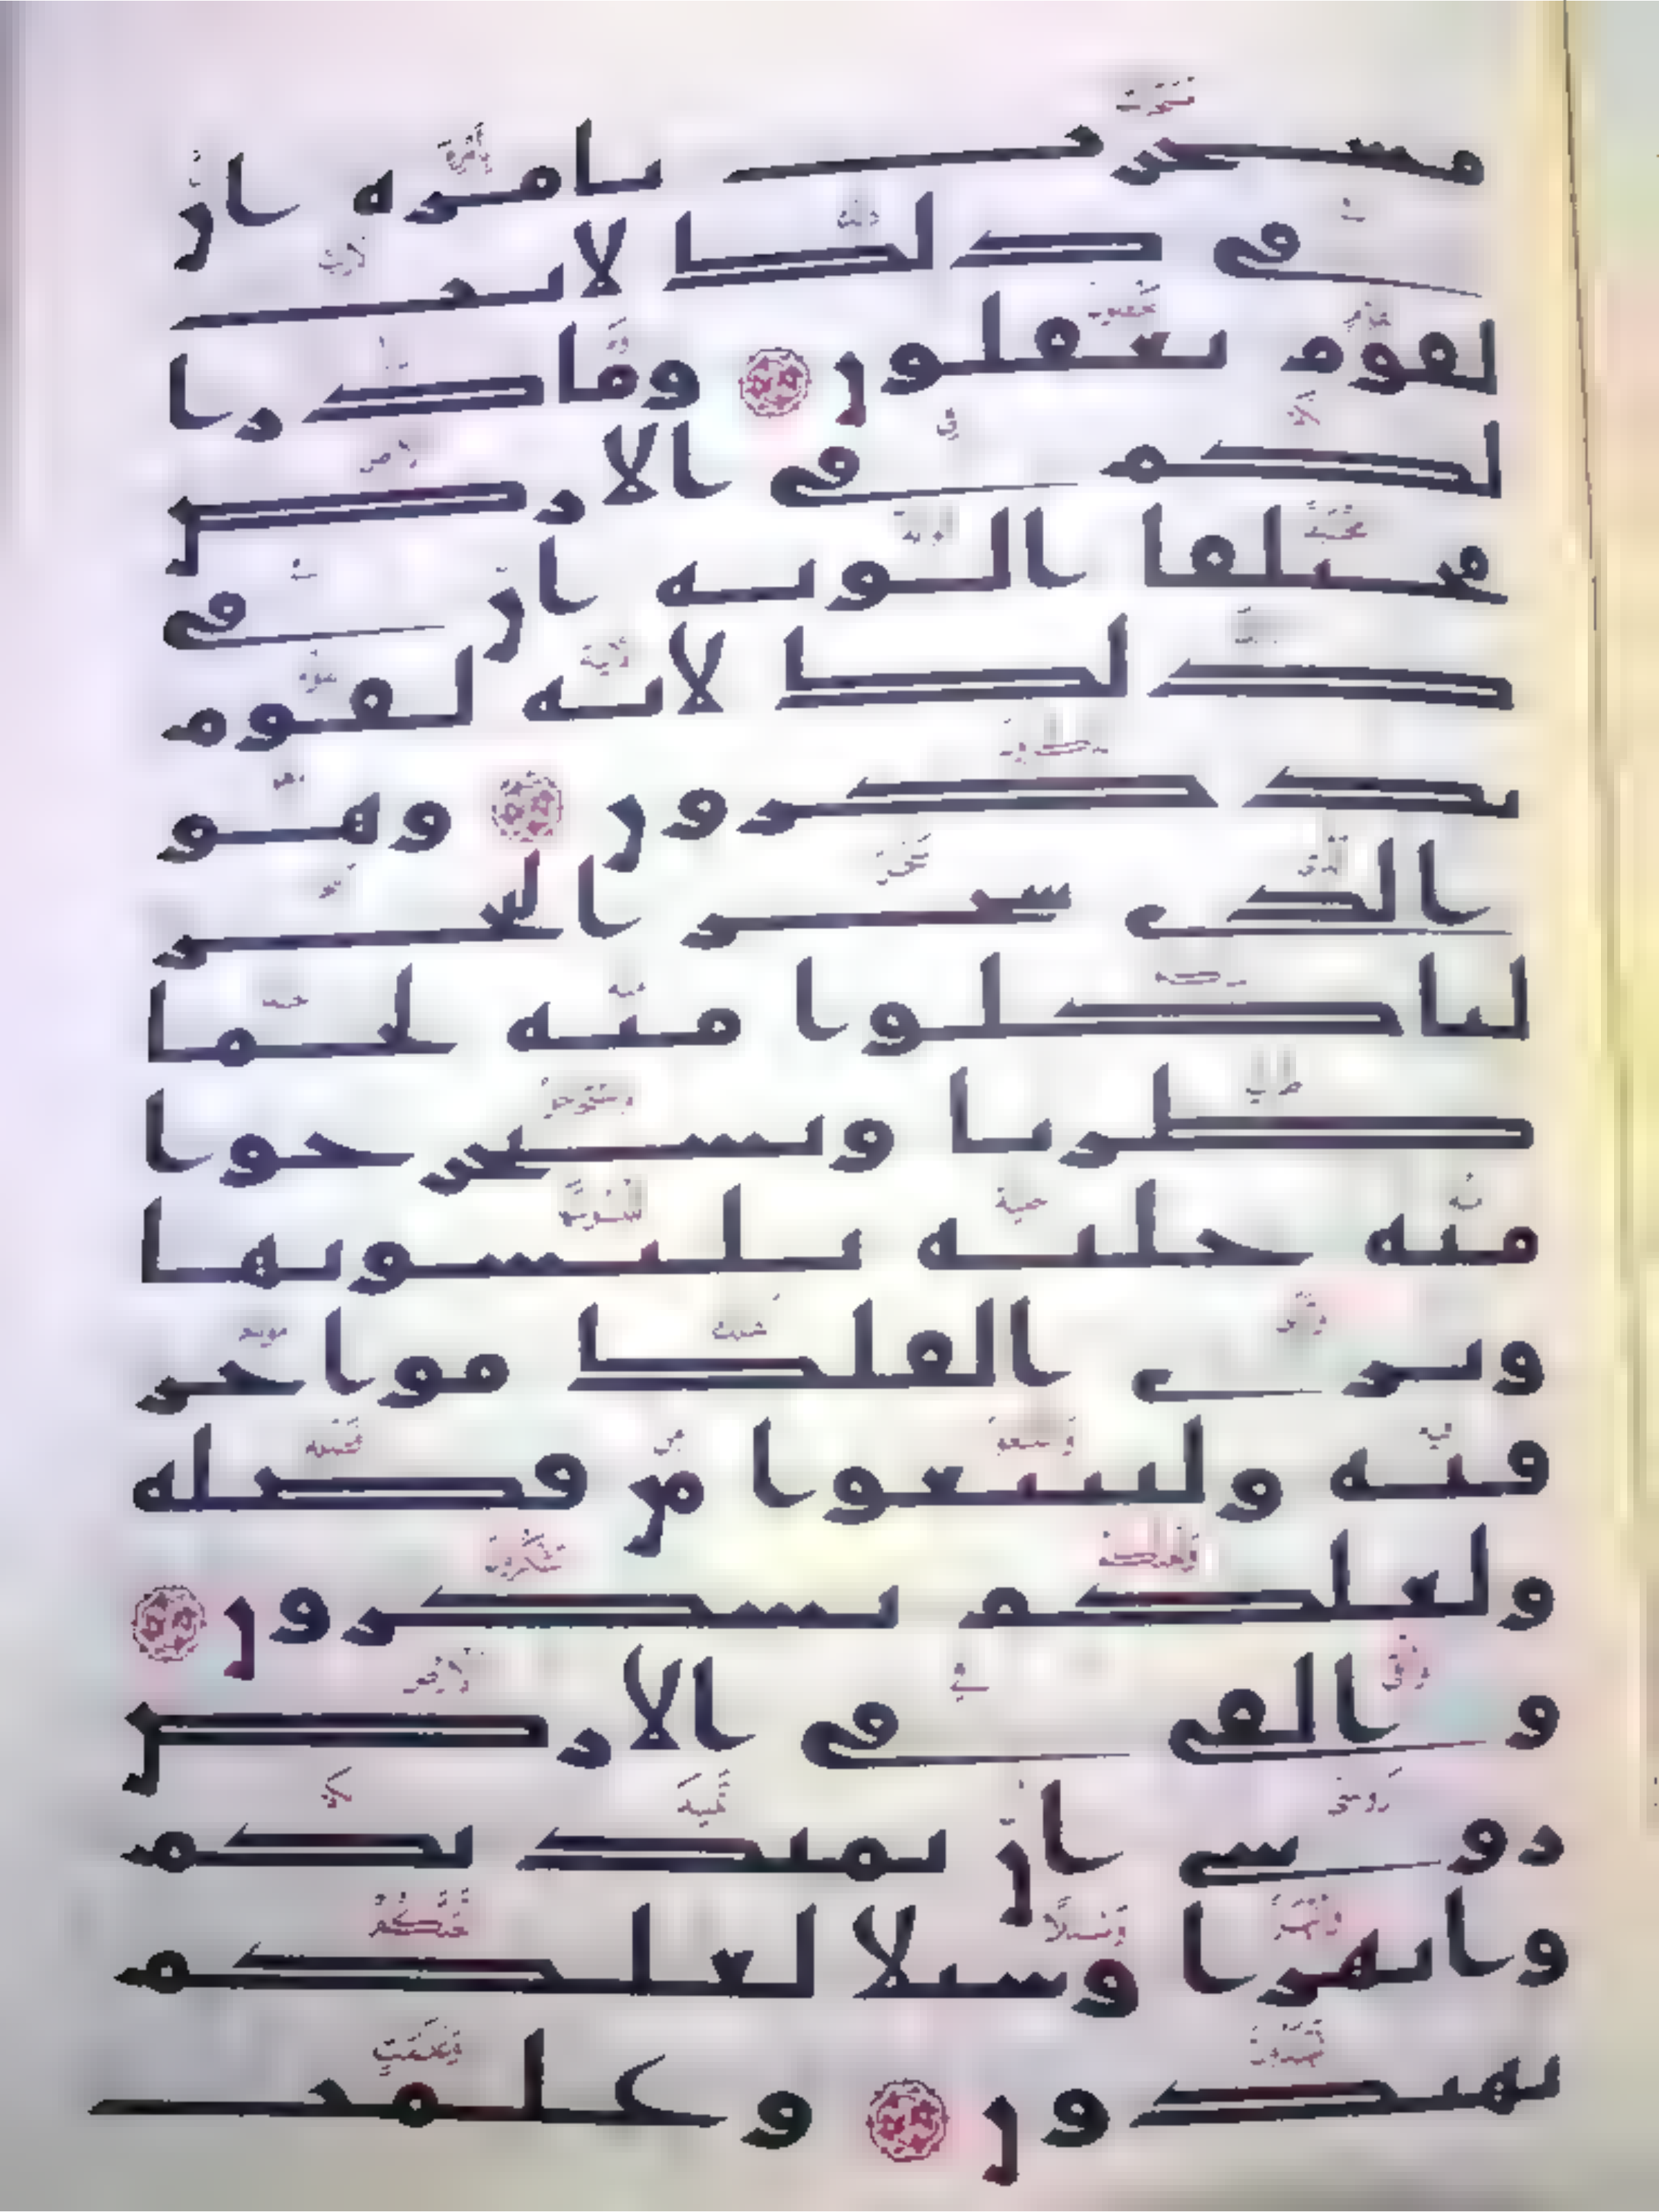 مسخرت بامره ان
في ذلك لايت
لقوم يعقلون وما ذرا
لكم في الارض
مختلفا الونه ان في
ذلك لايه لقوم
يذكرون وهو
الذي سخر البحر
لتاكلوا منه لحما
طريا وتستخرجوا
منه حليه تلبسونها
وترى الفلك مواخر
فيه ولتبتغوا من فضله
ولعلكم تشكرون
والقى في الارض
روسي ان تميد بكم
وانهرا وسبلا لعلكم
تهتدون وعلمت